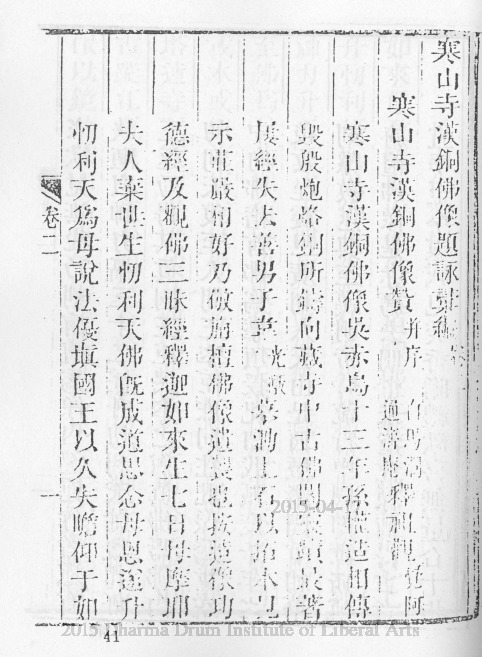 寒山寺漢銅佛像題詠彙編
寒山寺漢銅佛像贊 并序
釋祖觀 覺阿
寒山寺漢銅佛像吳赤烏十三年孫權造相傳
毀殷炮烙銅所鑄向藏寺中古佛閣靈蹟最著
屢經失去善男子
示莊嚴相好乃倣旃檀佛像遺製也按造像功
德經及觀佛三昧經釋迦如來生七日母摩耶
夫人棄世生忉利天佛旣成道思念母恩遂升
忉利天爲母說法優塡國王以久失瞻仰于如
卷二
一
2015-04-
2015 Dharma Drum Institute of Liberal Arts
41